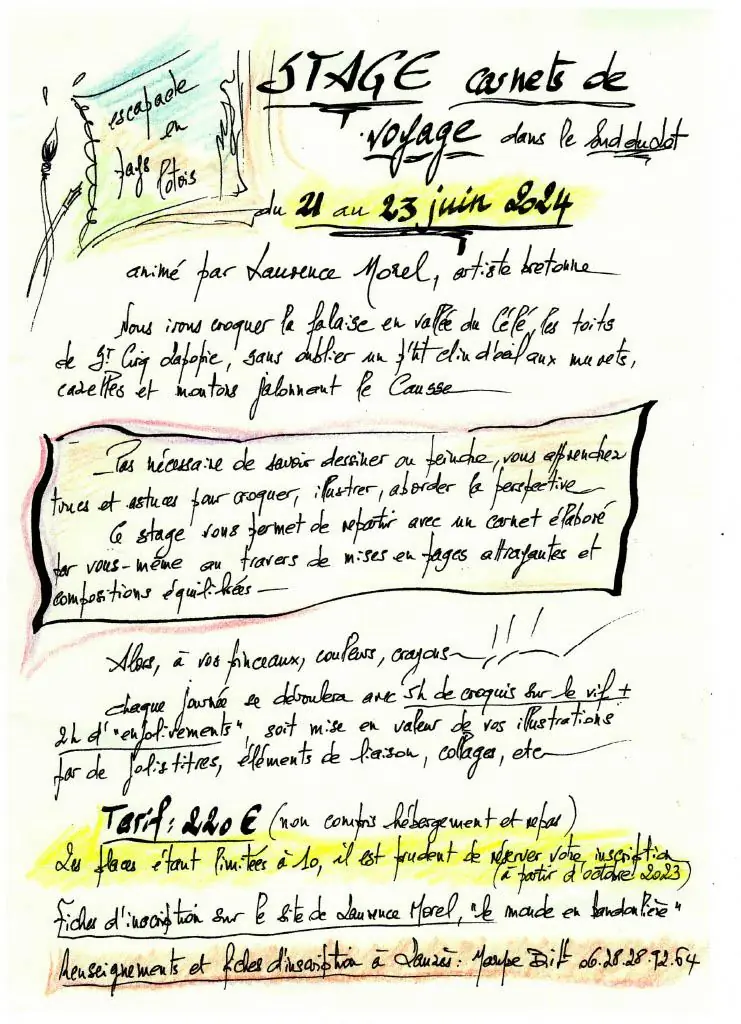 escapade
en
pays
Lotois
STAGE carnets de
voyage dans le Sud du Lot
du 21 au 23 juin 2024
animé par Laurence Morel, artiste bretonne
Nous irons croquer la falaise en vallée du Célé, les toits
de St Cirq Lapopie, sans oublier un p'tit clin d'œil aux murets,
cazelles et moutons jalonnant le Causse
Pas nécessaire de savoir dessiner ou peindre, vous apprendrez
trucs et astuces pour croquer, illustrer, aborder la perspective
Ce stage vous permet de repartir avec un carnet élaboré
par vous-même au travers de mises en pages attrayantes et
compositions équilibrées
Alors, à vos pinceaux, couleurs, crayons
chaque journée se déroulera avec 5h de croquis sur le vif +
2h d'"enjolivements", soit mise en valeur de vos illustrations
par de jolis titres, éléments de liaison, collages, etc
Tarif : 220 € (non compris hébergement et repas)
Les places étant limitées à 10, il est prudent de réserver votre inscription
(à partir d'octobre 2023)
Fiches d'inscription sur le site de Laurence Morel, "le monde en bandoulière"
Renseignements et fiches d'inscription à Lauzès : 06.28.28.92.64